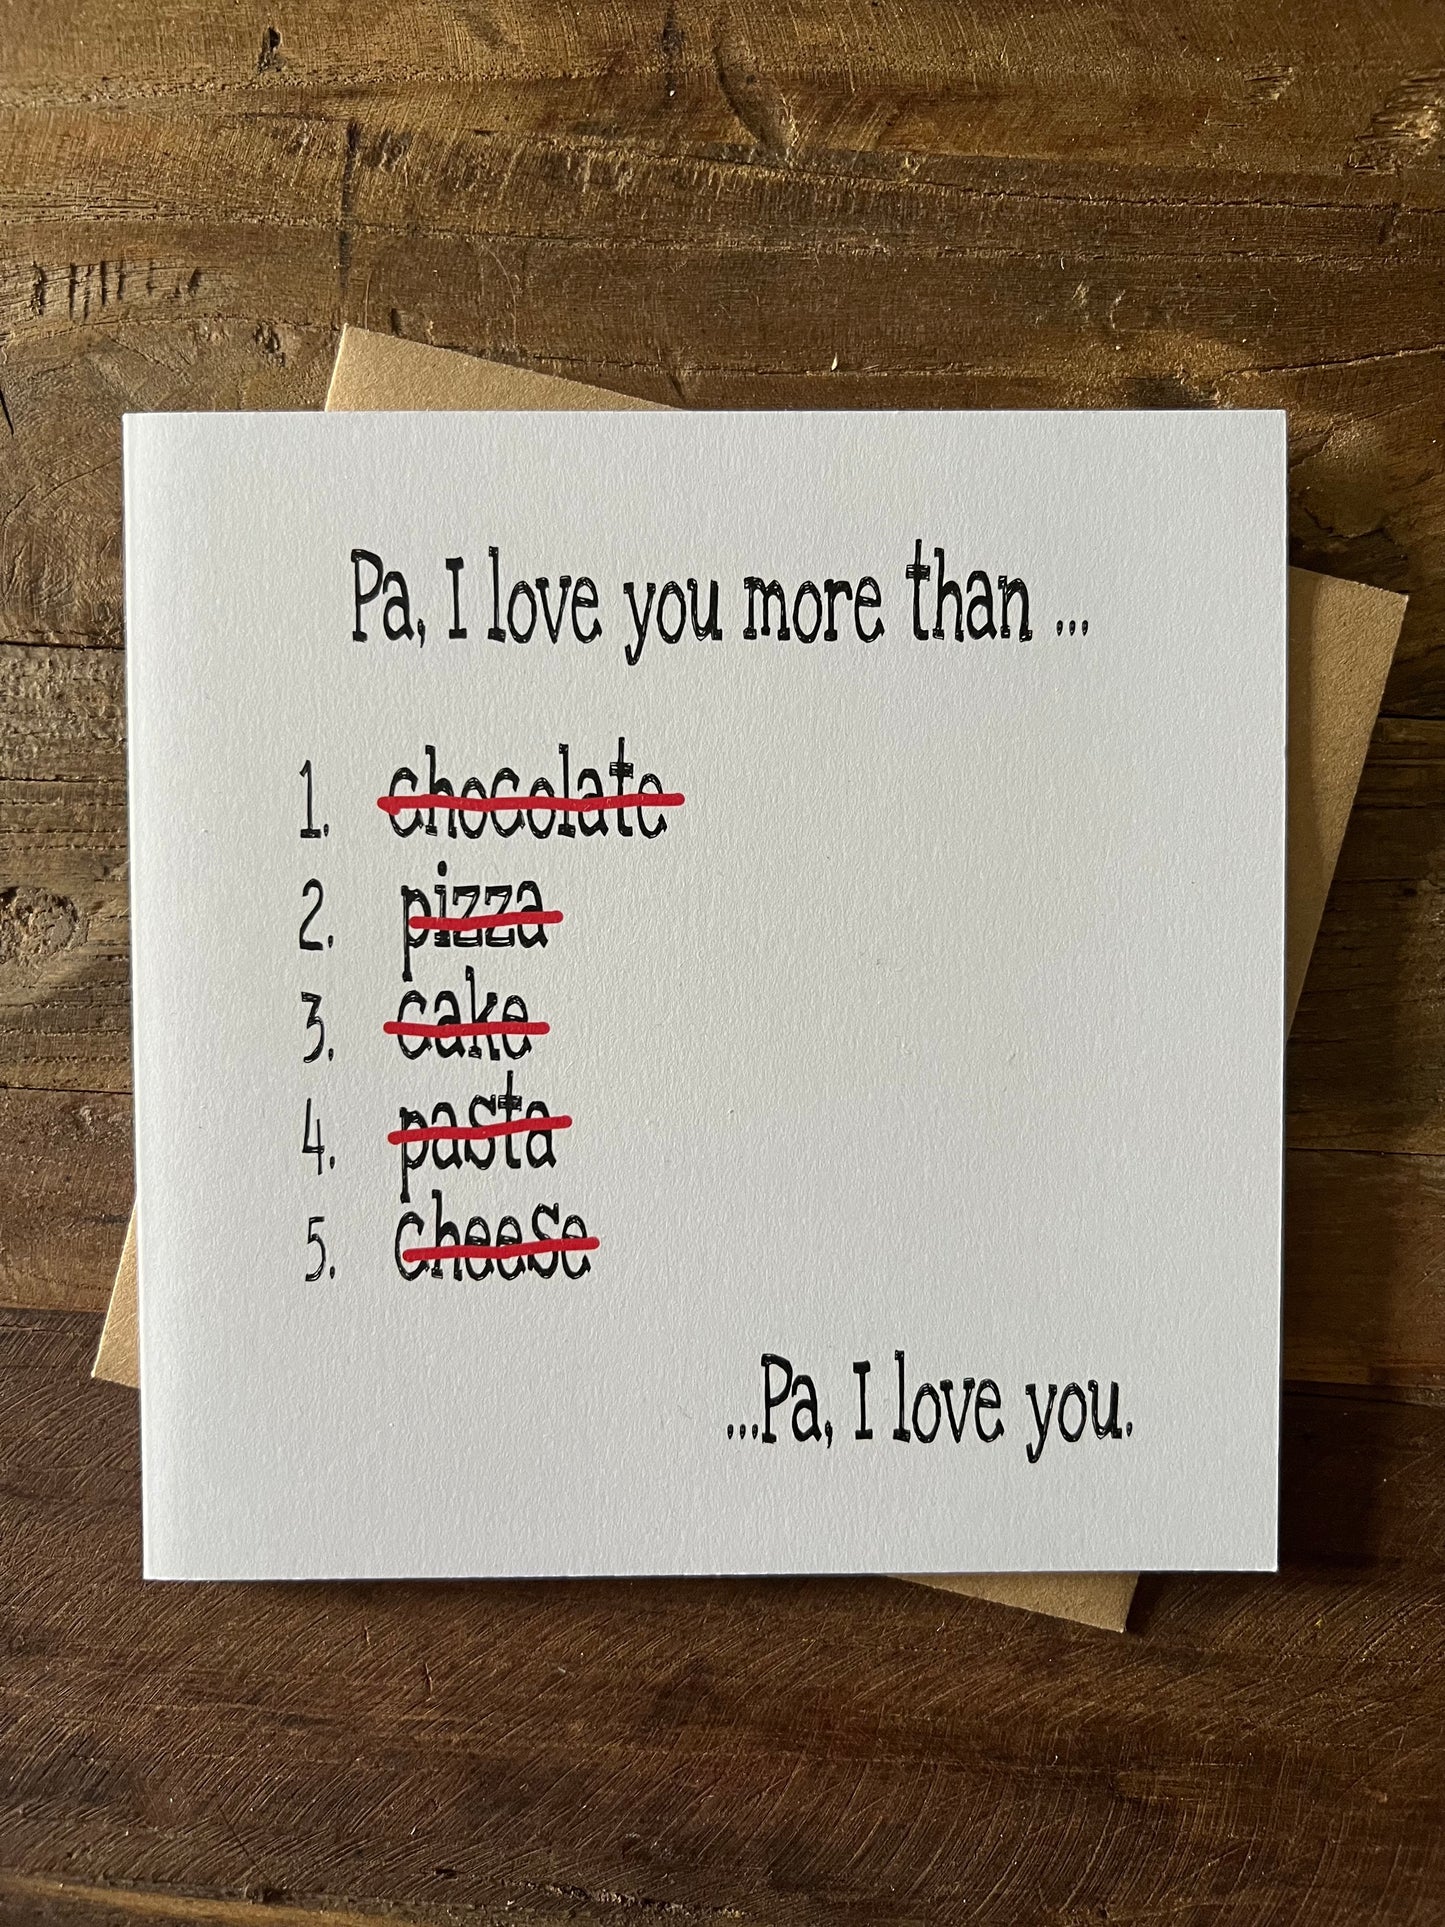 Pa, I love you more than ...
1. chocolate
2. pizza
3. cake
4. pasta
5. cheese
...Pa, I love you.